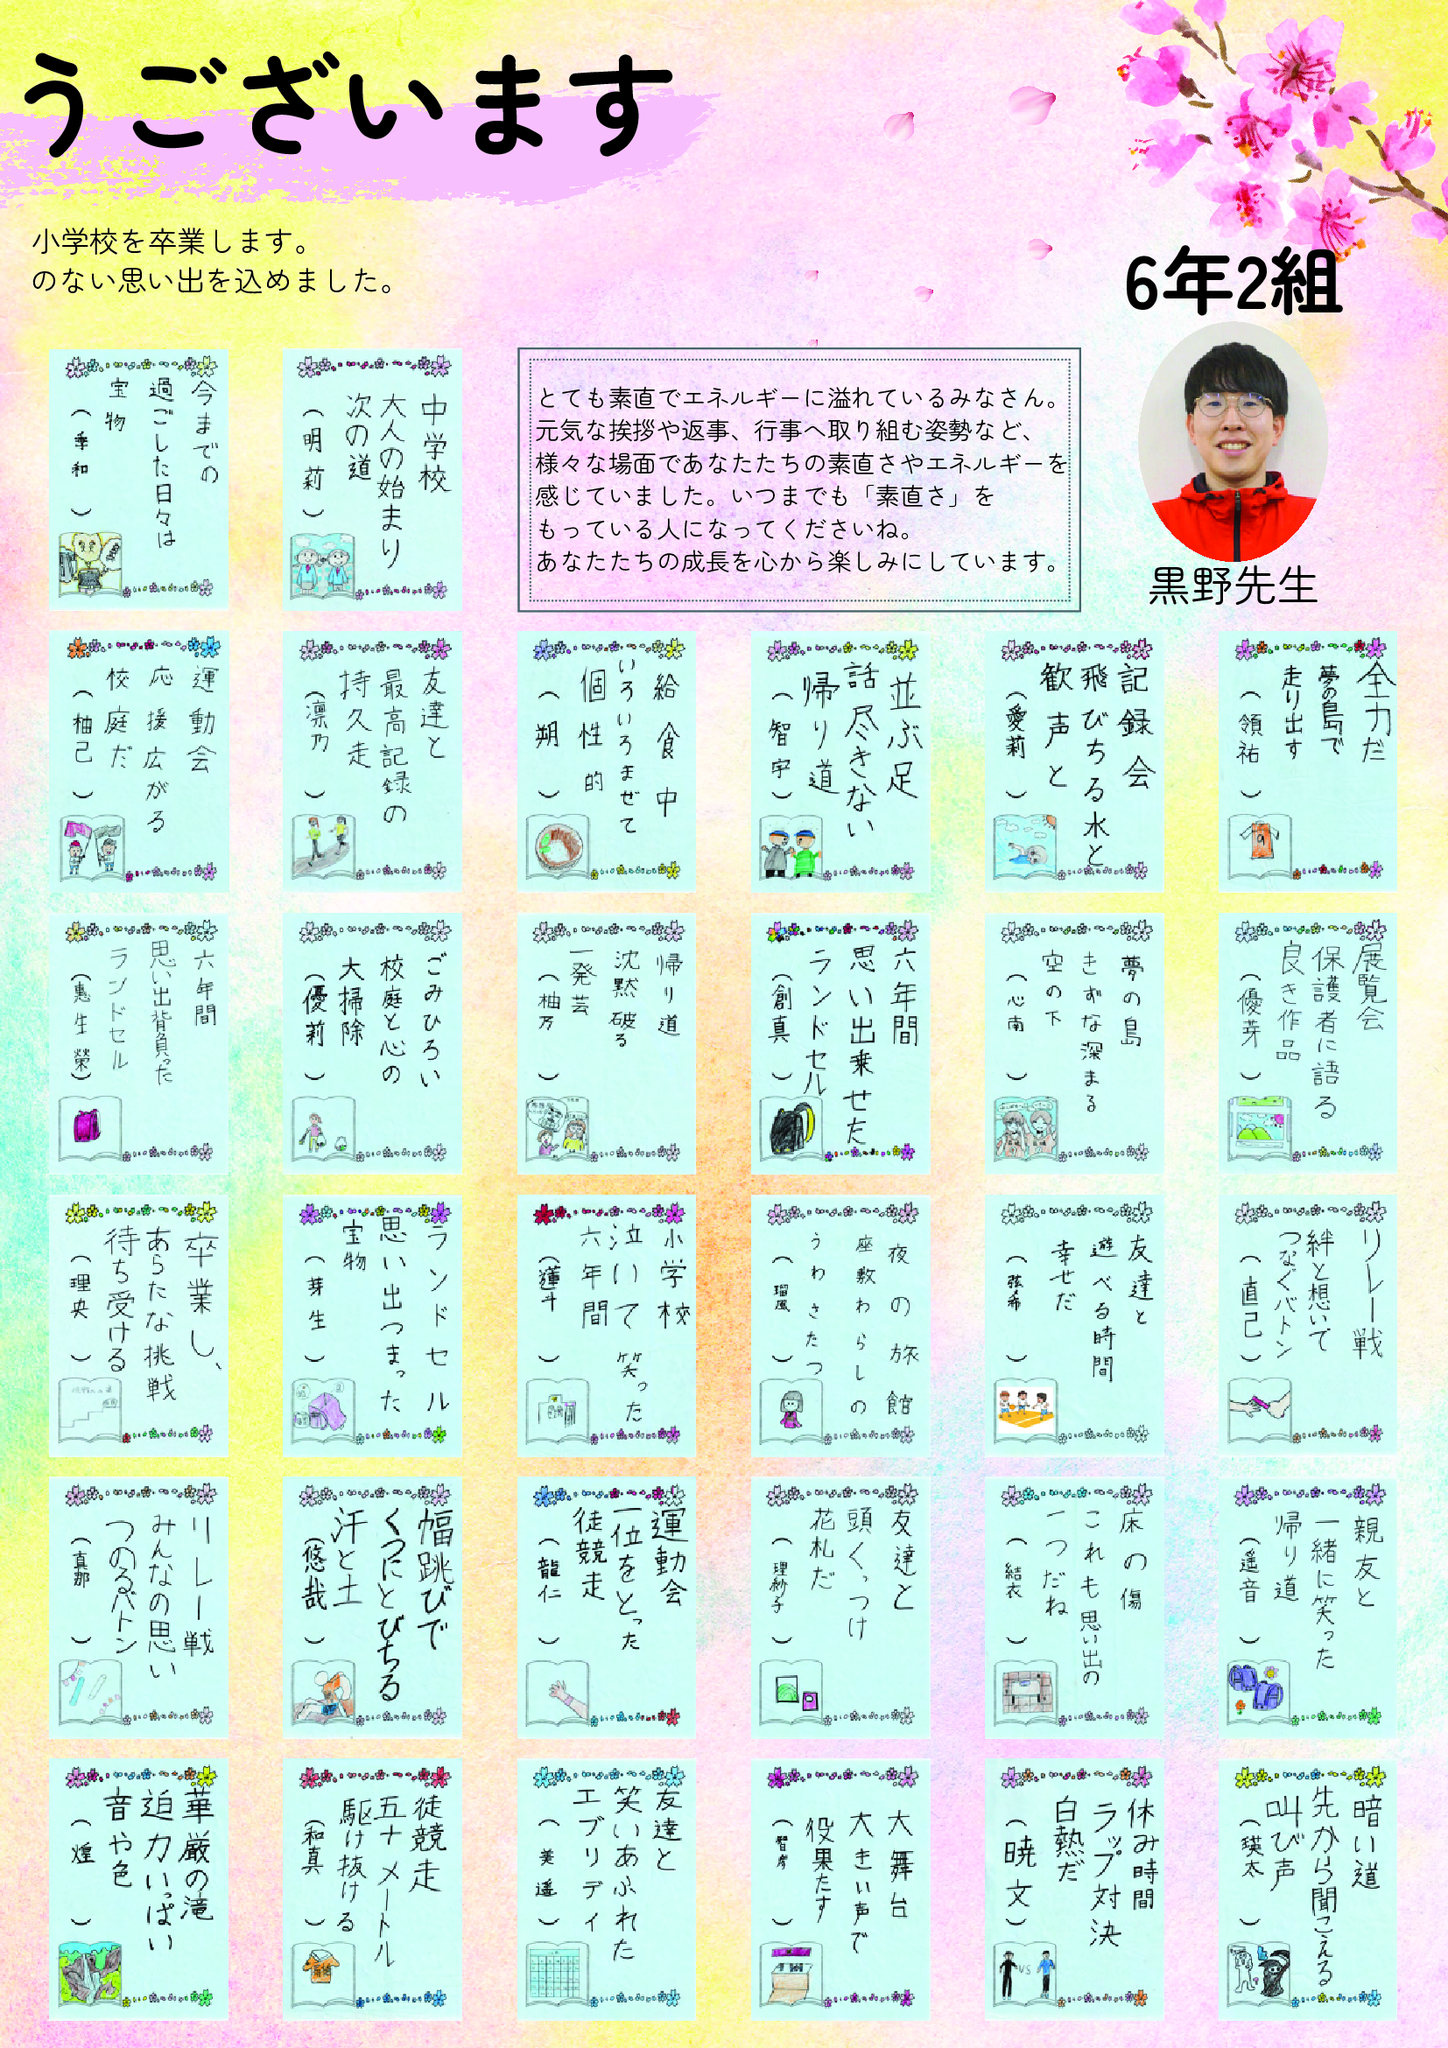 うございます
小学校を卒業します。
のない思い出を込めました。
6年2組
黒野先生
とても素直でエネルギーに溢れているみなさん。
元気な挨拶や返事、行事へ取り組む姿勢など、
様々な場面であなたたちの素直さやエネルギーを
感じていました。いつまでも「素直さ」を
もっている人になってくださいね。
あなたたちの成長を心から楽しみにしています。
中学校
大人の始まり
次の道
(明莉)
今までの
過ごした日々は
宝物
(季和)
全力だ
夢の島で
走り出す
(領祐)
記録会
飛びちる水と
歓声と
(愛莉)
並ぶ足
話尽きない
帰り道
(智宇)
給食中
いろいろまぜて
個性的
(朔)
友達と
最高記録の
持久走
(凛乃)
運動会
応援広がる
校庭だ
(柚己)
展覧会
保護者に語る
良き作品
(優芽)
夢の島
きずな深まる
空の下
(心南)
六年間
思い出乗せた
ランドセル
(創真)
帰り道
沈黙破る
一発芸
(柚乃)
ごみひろい
校庭と心の
大掃除
(優莉)
六年間
思い出背負った
ランドセル
(惠生榮)
リレー戦
絆と想いで
つなぐバトン
(直己)
友達と
遊べる時間
幸せだ
(弦希)
夜の旅館
座敷わらしの
うわさたつ
(瑠風)
小学校
泣いて笑った
六年間
(蓮斗)
ランドセル
思い出つまった
宝物
(芽生)
卒業し、
あらたな挑戦
待ち受ける
(理央)
親友と
一緒に笑った
帰り道
(遥音)
床の傷
これも思い出の
一つだね
(結衣)
友達と
頭くっつけ
花札だ
(理紗子)
運動会
一位をとった
徒競走
(龍仁)
幅跳びで
くつにとびちる
汗と土
(悠哉)
リレー戦
みんなの思い
つのるバトン
(真那)
暗い道
先から聞こえる
叫び声
(瑛太)
休み時間
ラップ対決
白熱だ
(暁文)
VS
大舞台
大きい声で
役果たす
(智彦)
友達と
笑いあふれた
エブリデイ
(美遥)
徒競走
五十メートル
駆け抜ける
(和真)
華厳の滝
迫力いっぱい
音や色
(煌)